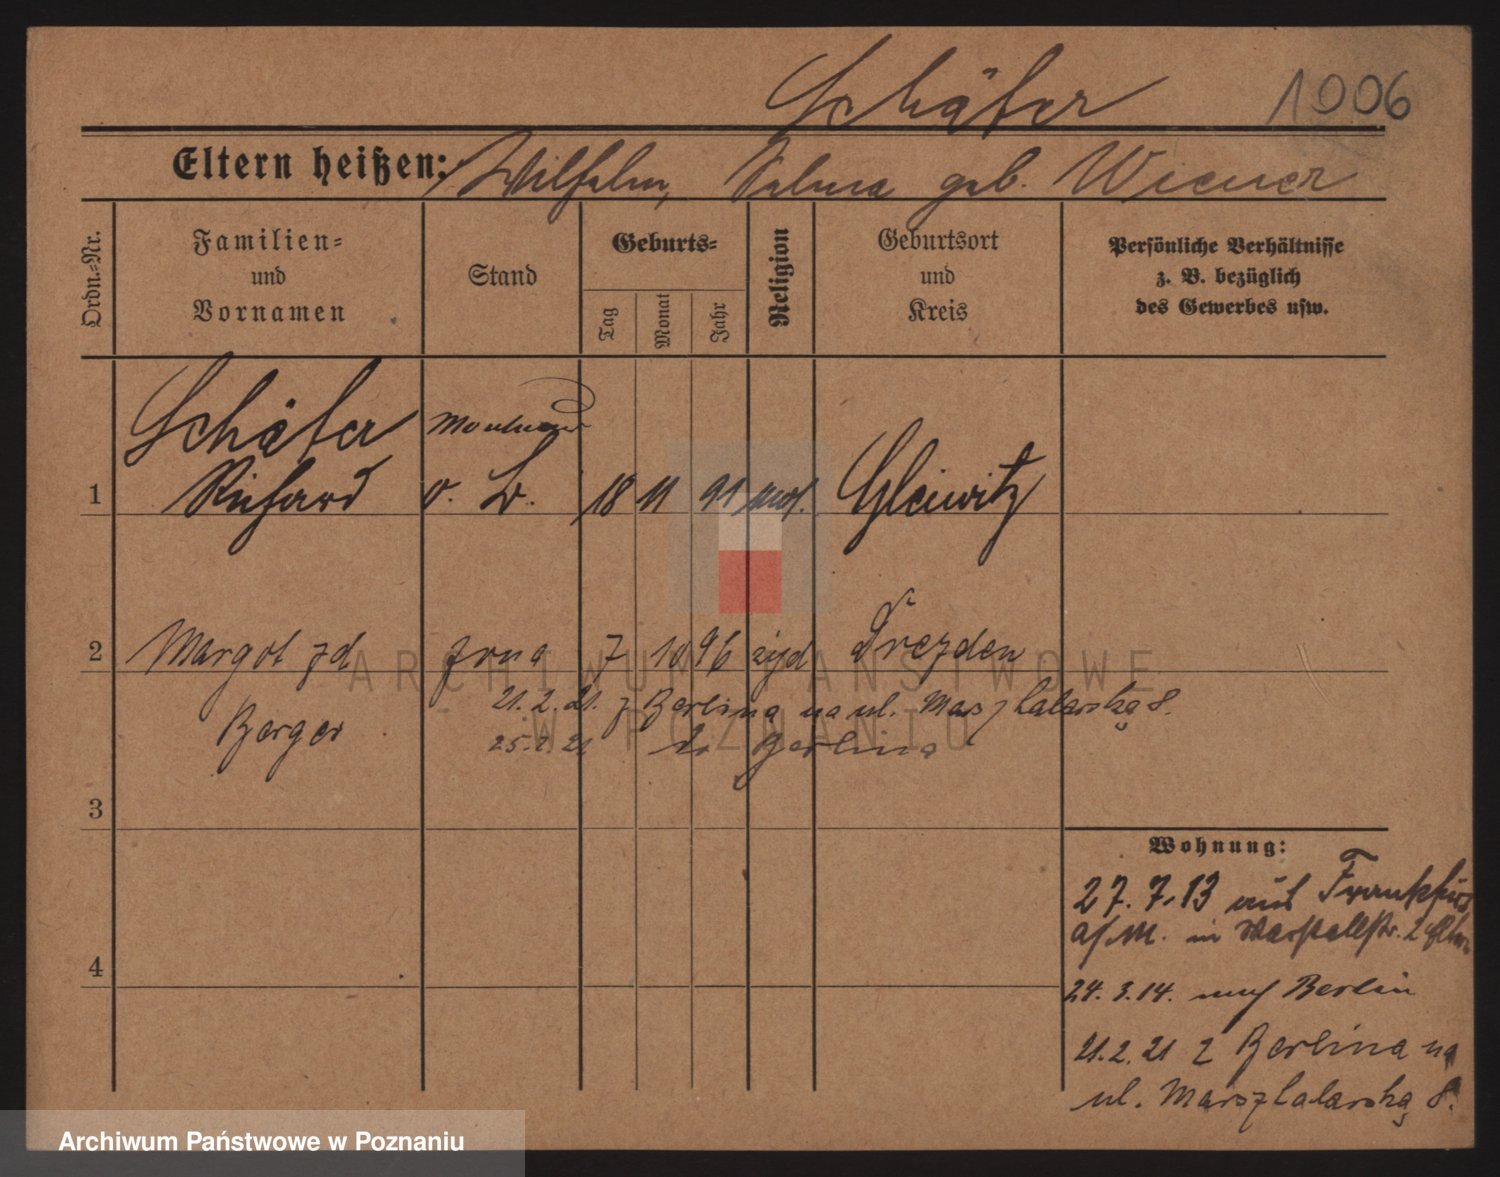 Schäfer 1006
Eltern heißen: Wilhelm, Selma geb. Wiener
Ordn.=Nr.
Familien=
und
Vornamen
Stand
Geburts=
Tag
Monat
Jahr
Religion
Geburtsort
und
Kreis
Persönliche Verhältnisse
z. B. bezüglich
des Gewerbes usw.
Schäfer
1 Richard 18 11 91 mos. Gleiwitz
2 Margot zd żona 7 10 96 żyd Drezden
Berger
21.2.21. z Berlina na ul. Masztalarską 8.
25.2.21 do Berlina
3
4
Wohnung:
27.7.13 aus Frankfurt
a/M. in Marstallstr. 2
24.3.14. nach Berlin
21.2.21 z Berlina na
ul. Masztalarską 8.
ARCHIWUM PAŃSTWOWE
W POZNANIU
Archiwum Państwowe w Poznaniu